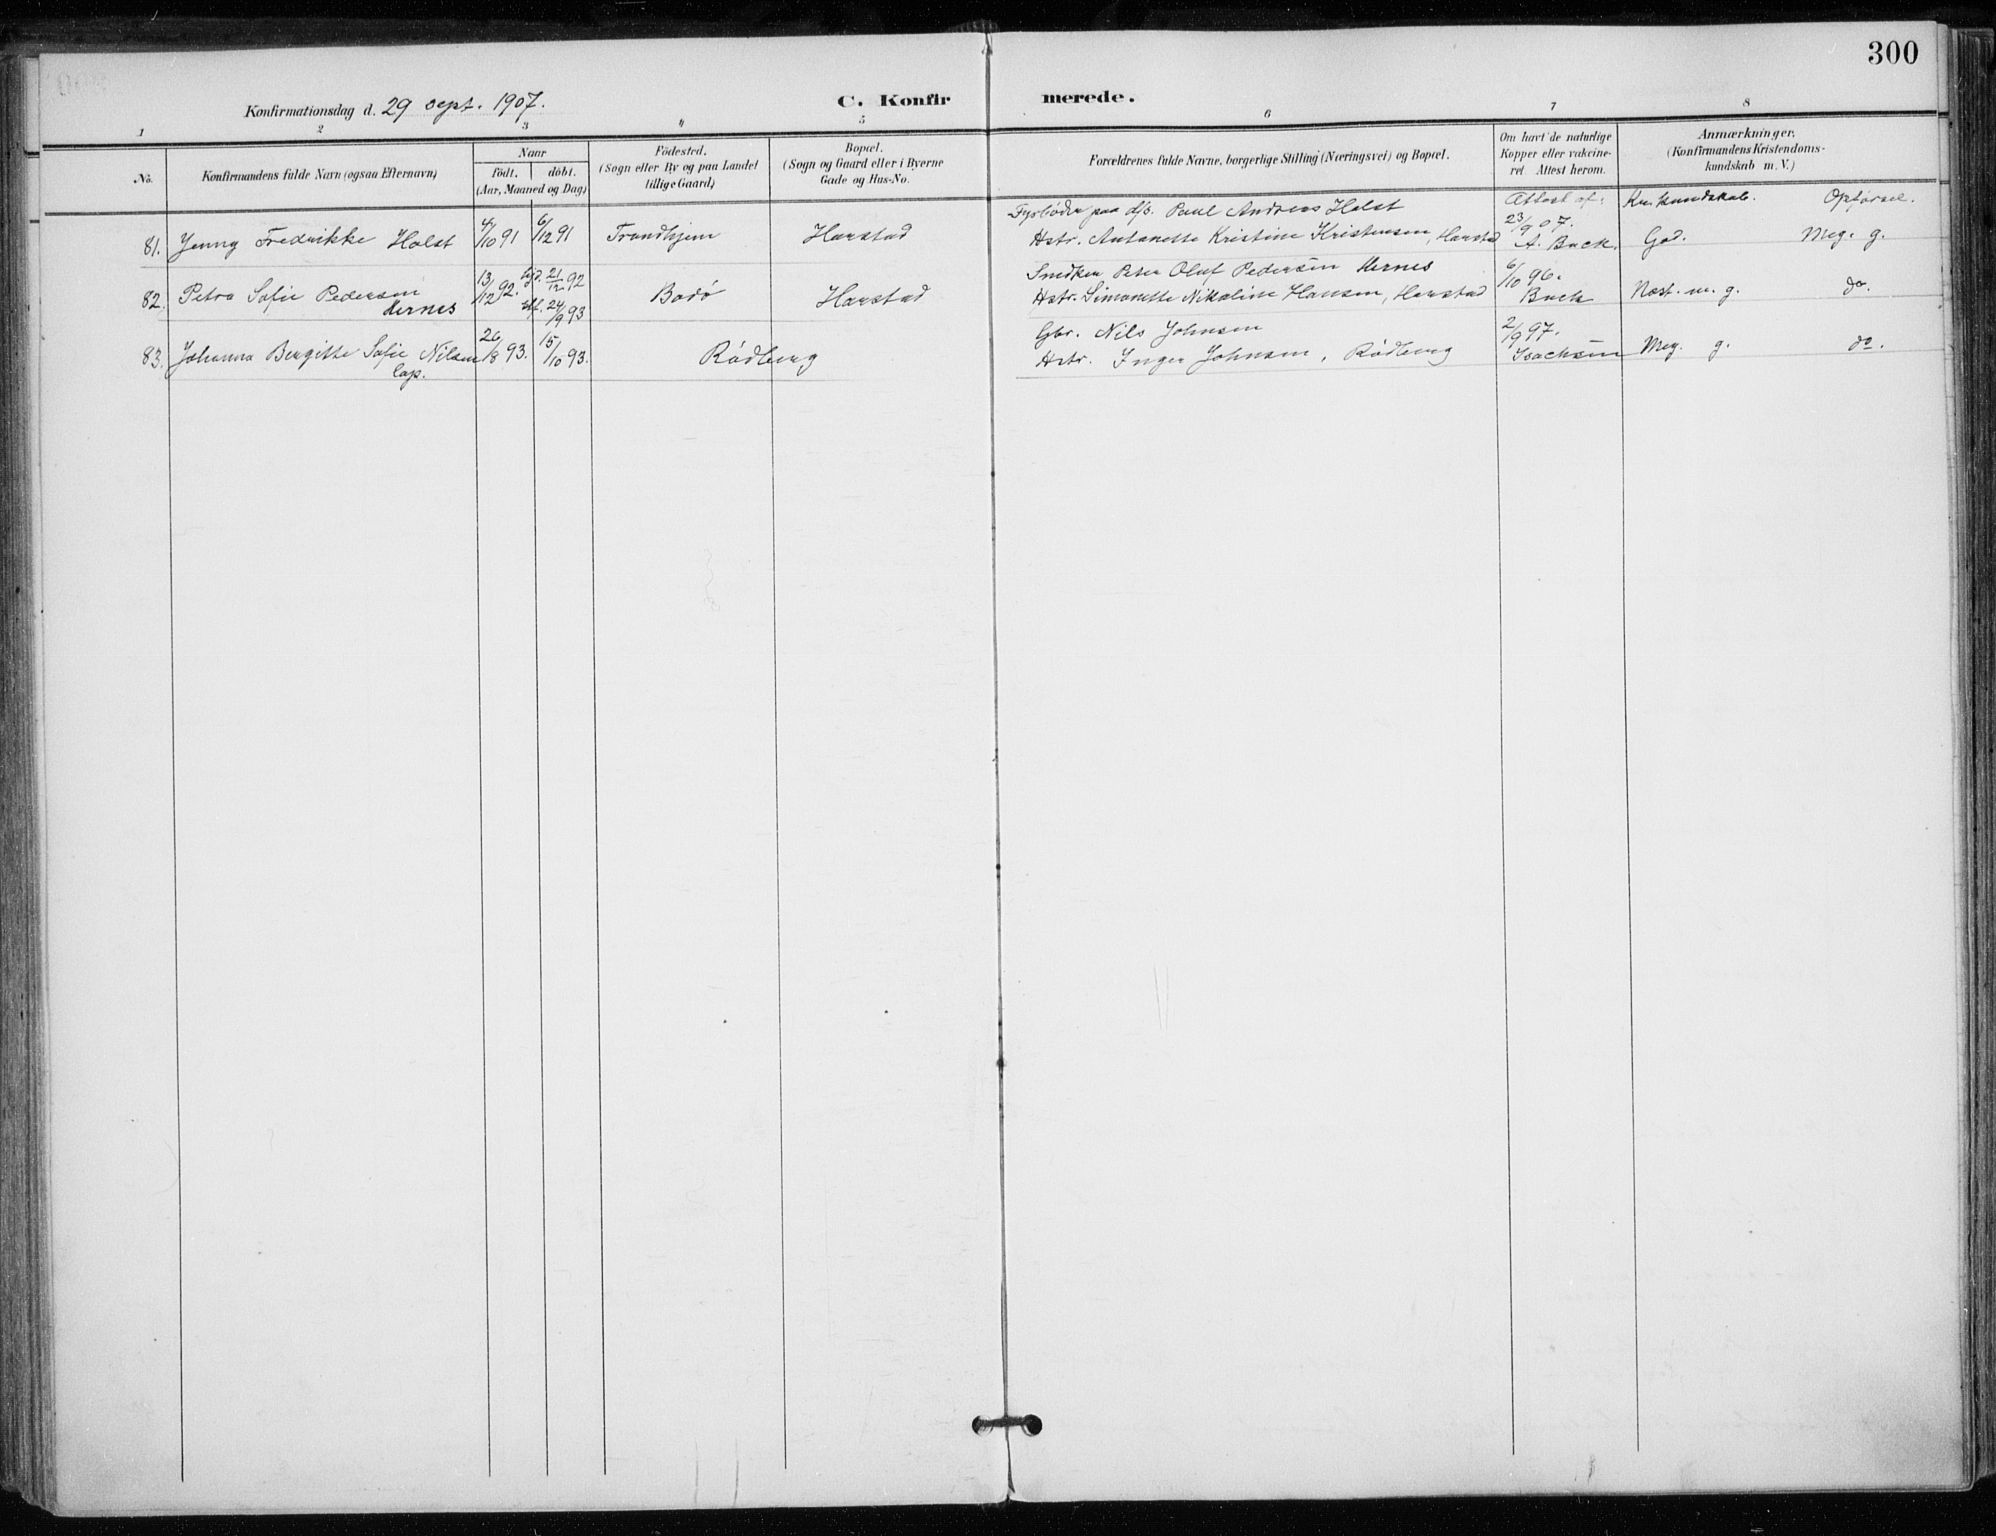 300
Konfirmationsdag d. 29 sept. 1907.
C. Konfir merede.
1 2 3 4 5 6 7 8
No.
Konfirmandens fulde Navn (ogsaa Efternavn)
Naar
født. døbt.
(Aar, Maaned og Dag)
Fødested.
(Sogn eller By og paa Landet
tillige Gaard)
Bopæl.
(Sogn og Gaard eller i Byerne
Gade og Hus-No.
Forældrenes fulde Navne, borgerlige Stilling (Næringsvei) og Bopæl.
Om havt de naturlige
Kopper eller vakcine-
ret Attest herom.
Anmærkninger.
(Konfirmandens Kristendoms-
kundskab m. V.)
Attest af: Kr. kundskab. Opførsel.
Fyrbøder paa d/s. Paul Andreas Holst
81. Jenny Fredrikke Holst 4/10 91 6/12 91 Trondhjem Harstad Hstr. Antonette Kristine Kristensen, Harstad 23/9 07. A. Buck. God. Meg. g.
Smedken Peter Oluf Pedersen Hernes
82. Petra Sofie Pedersen Hernes 13/12 92. hjd. 21/12 92 stf. 24/9 93 Bodø Harstad Hstr. Simonette Nikoline Hansen, Harstad 6/10 96. Buck Næst. m. g. do.
Gbr. Nils Johnsen
83. Johanna Bergitte Sofie Nilsen 26/8 93. 15/10 93. Rødberg Hstr. Inger Johnsen, Rødberg 2/9 97. Isachsen Meg. g. do.
lap.